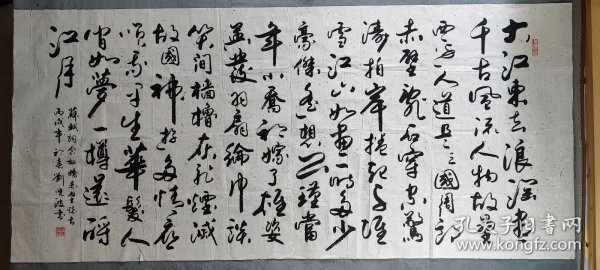 大江東去浪淘盡
千古風流人物故壘
西邊人道是三國周郎
赤壁亂石穿空驚
濤拍岸捲起千堆
雪江山如畫一時多少
豪傑遙想公瑾當
年小喬初嫁了雄姿
英發羽扇綸巾談
笑間檣櫓灰飛煙滅
故國神遊多情應
笑我早生華髮人
間如夢一樽還酹
江月
蘇軾詞念奴嬌赤壁懷古
丙戌年初春劉書
孔夫子旧书网
www.kongfz.com